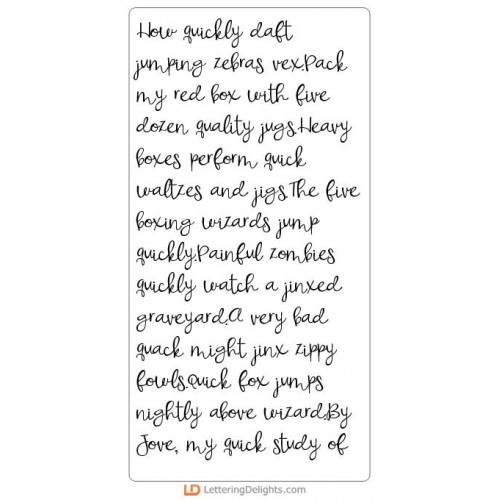 How quickly daft
jumping zebras vex.Pack
my red box with five
dozen quality jugs.Heavy
boxes perform quick
waltzes and jigs.The five
boxing wizards jump
quickly.Painful zombies
quickly watch a jinxed
graveyard.A very bad
quack might jinx zippy
fowls.Quick fox jumps
nightly above wizard.By
Jove, my quick study of
LD LetteringDelights.com